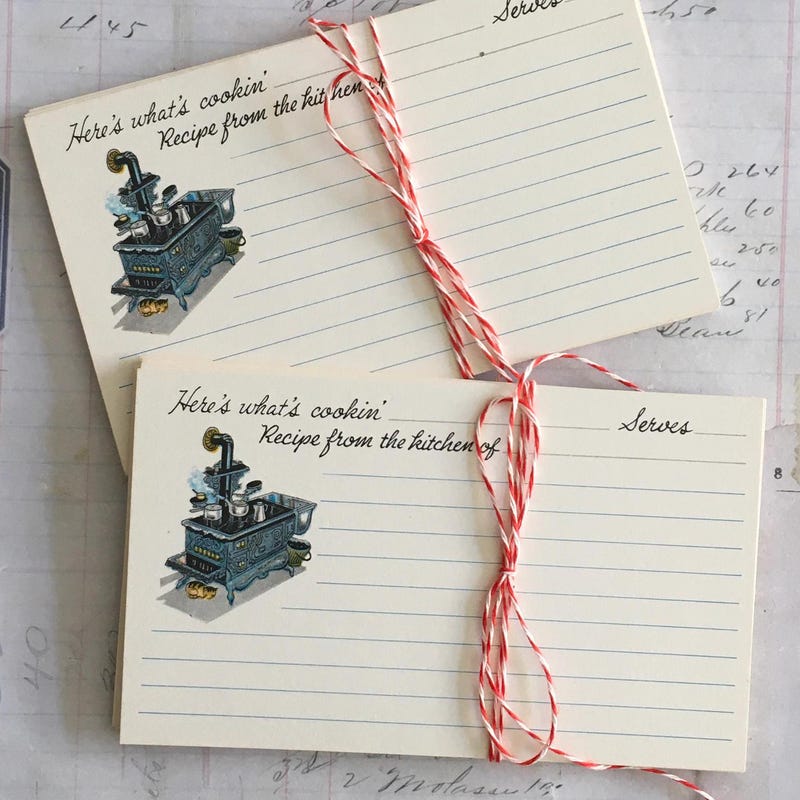 445
50
Serves
Here's what's cookin'
Recipe from the kitchen of
264
60
250
40
Beans 81
Here's what's cookin'
Serves
Recipe from the kitchen of
8
40
2 Molasses